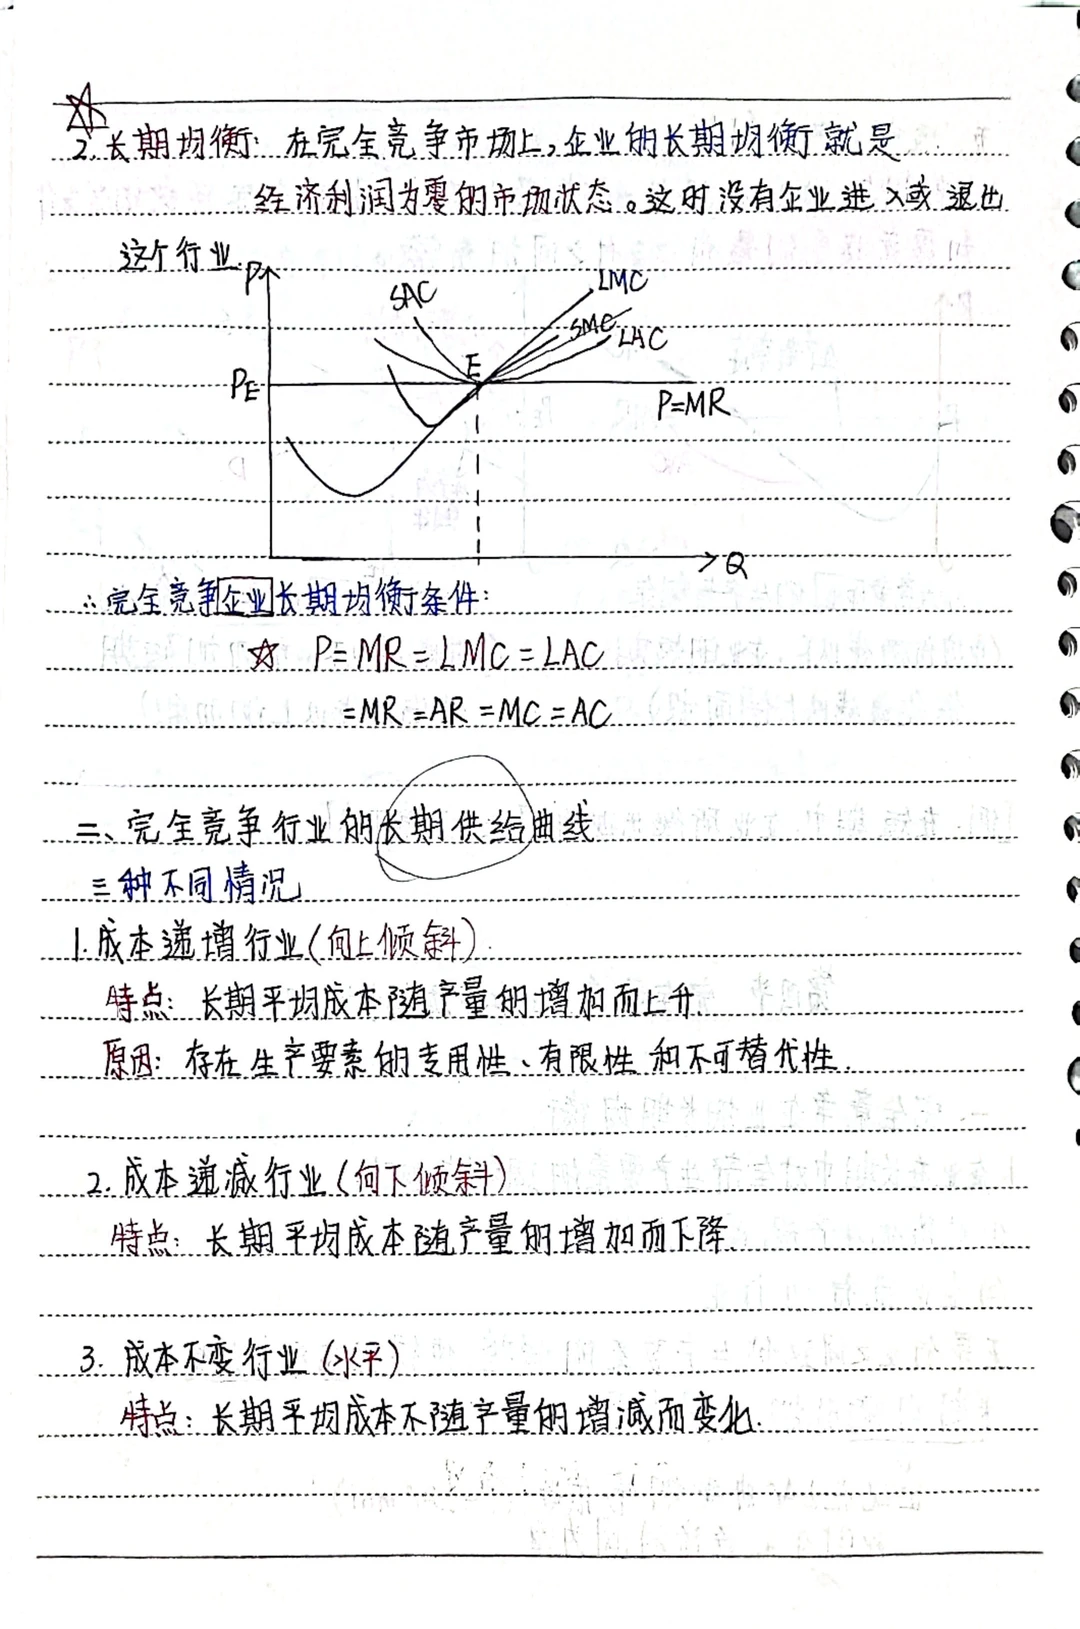 2.长期均衡：在完全竞争市场上,企业的长期均衡就是
经济利润为零的市场状态。这时没有企业进入或退出
这个行业.
P
SAC
LMC
SMC
LAC
E
PE
P=MR
Q
∴完全竞争企业长期均衡条件：
☆ P=MR=LMC=LAC
=MR=AR=MC=AC
二、完全竞争行业的长期供给曲线
三种不同情况
1.成本递增行业(向上倾斜).
特点：长期平均成本随产量的增加而上升.
原因：存在生产要素的专用性、有限性和不可替代性.
2.成本递减行业(向下倾斜)
特点：长期平均成本随产量的增加而下降.
3.成本不变行业(水平)
特点：长期平均成本不随产量的增减而变化.